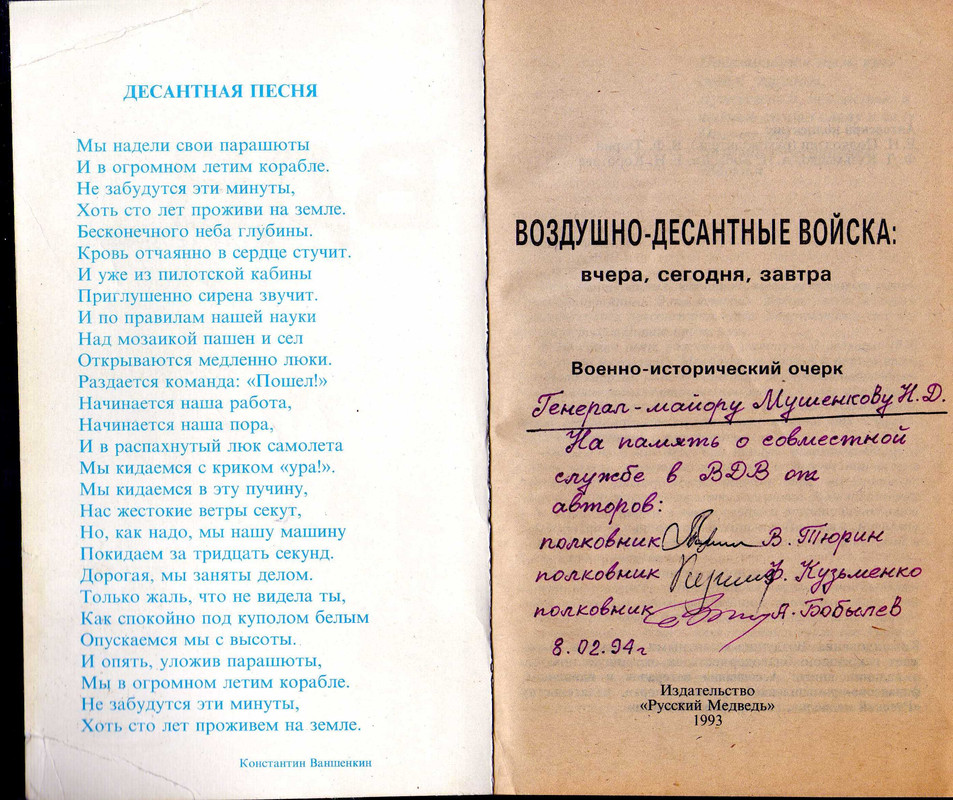 ДЕСАНТНАЯ ПЕСНЯ
Мы надели свои парашюты
И в огромном летим корабле.
Не забудутся эти минуты,
Хоть сто лет проживи на земле.
Бесконечного неба глубины.
Кровь отчаянно в сердце стучит.
И уже из пилотской кабины
Приглушенно сирена звучит.
И по правилам нашей науки
Над мозаикой пашен и сел
Открываются медленно люки.
Раздается команда: «Пошел!»
Начинается наша работа,
Начинается наша пора,
И в распахнутый люк самолета
Мы кидаемся с криком «ура!».
Мы кидаемся в эту пучину,
Нас жестокие ветры секут,
Но, как надо, мы нашу машину
Покидаем за тридцать секунд.
Дорогая, мы заняты делом.
Только жаль, что не видела ты,
Как спокойно под куполом белым
Опускаемся мы с высоты.
И опять, уложив парашюты,
Мы в огромном летим корабле.
Не забудутся эти минуты,
Хоть сто лет проживем на земле.
Константин Ваншенкин
ВОЗДУШНО-ДЕСАНТНЫЕ ВОЙСКА:
вчера, сегодня, завтра
Военно-исторический очерк
Генерал-майору Мушенкову Н.Д.
На память о совместной
службе в ВДВ от
авторов:
полковник В. Тюрин
полковник Ф. Кузьменко
полковник А. Бобылев
8.02.94г
Издательство
«Русский Медведь»
1993